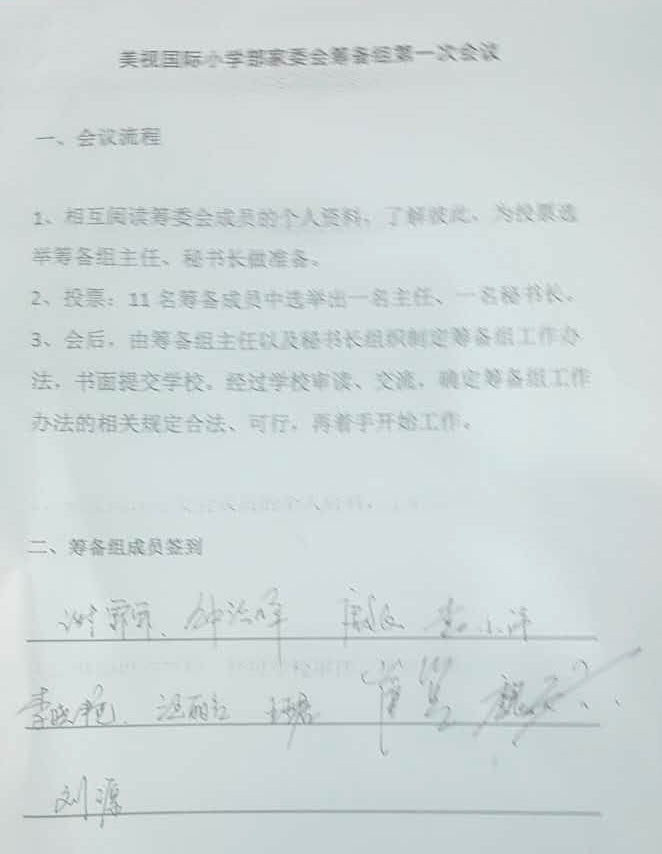 美视国际小学部家委会筹备组第一次会议
一、会议流程
1、相互阅读筹委会成员的个人资料，了解彼此，为投票选
举筹备组主任、秘书长做准备。
2、投票：11名筹备成员中选举出一名主任、一名秘书长。
3、会后，由筹备组主任以及秘书长组织制定筹备组工作办
法，书面提交学校，经过学校审读、交流，确定筹备组工作
办法的相关规定合法、可行，再着手开始工作。
二、筹备组成员签到
李小洋
李晓艳 汪丽红
刘源